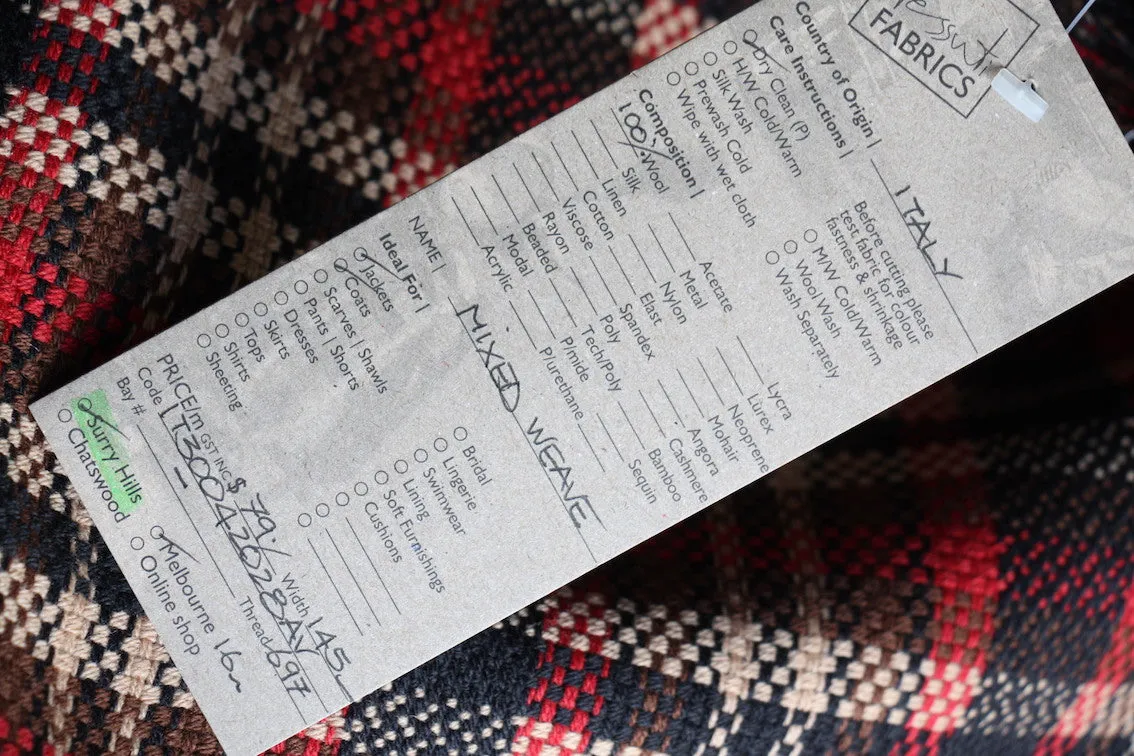 essuti
FABRICS
Country of Origin | ITALY
Care Instructions |
Dry Clean (P)
H/W Cold/Warm
Silk Wash
Prewash Cold
Wipe with wet cloth
Before cutting please
test fabric for colour
fastness & shrinkage
M/W Cold/Warm
Wool Wash
Wash Separately
Composition |
100% Wool
Silk
Linen
Cotton
Viscose
Rayon
Beaded
Modal
Acrylic
Acetate
Metal
Nylon
Elast
Spandex
Poly
Tech/Poly
P/mide
P/urethane
Lycra
Lurex
Neoprene
Mohair
Angora
Cashmere
Bamboo
Sequin
NAME | MIXED WEAVE
Ideal For |
Jackets
Coats
Scarves | Shawls
Pants | Shorts
Dresses
Skirts
Tops
Shirts
Sheeting
Bridal
Lingerie
Swimwear
Lining
Soft Furnishings
Cushions
PRICE/m GST INC $ 79/ Width 145
Code | T30042028AV Thread 697
Bay #
Surry Hills
Chatswood
Melbourne 16m
Online shop